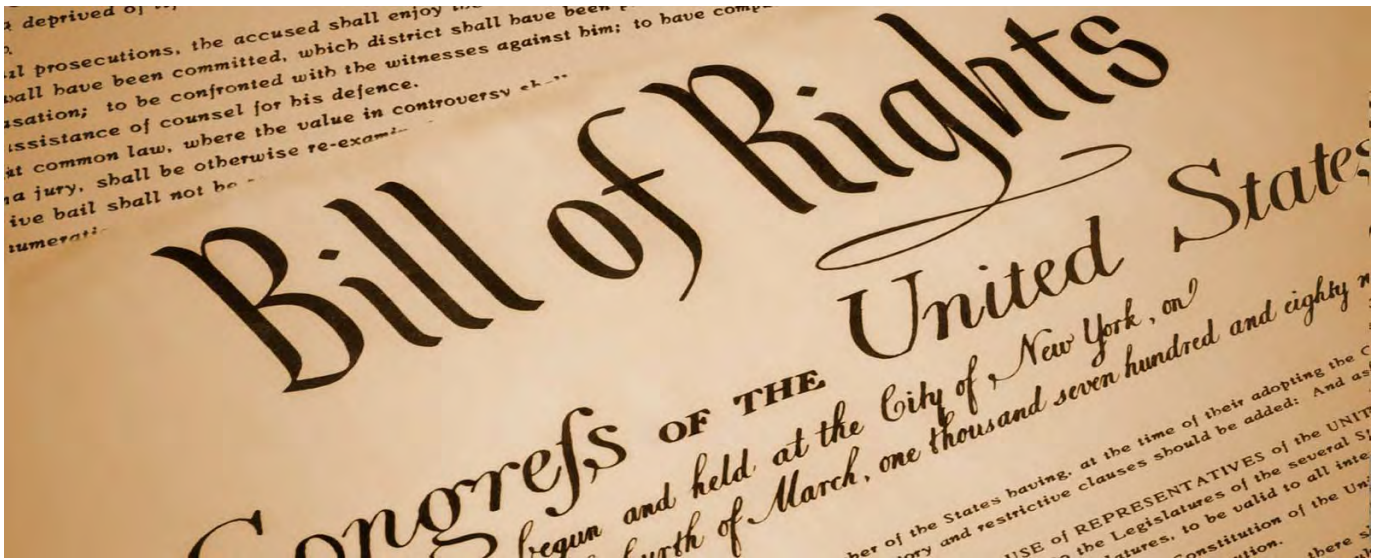 deprived of
prosecutions, the accused shall enjoy the
all have been committed, which district shall have been
sation; to be confronted with the witnesses against him; to have
ssistance of counsel for his defence.
at common law, where the value in controversy
a jury, shall be otherwise re-exami
ive bail shall not be
numerati
Bill of Rights
Congreſs OF THE United States
begun and held at the City of New York, on
urth of March, one thousand seven hundred and eighty
ber of the States having, at the time of their adopting the C
ory and restrictive clauses should be added: And as
USE of REPRESENTATIVES of the UNIT
the Legislatures of the several S
latures, to be valid to all inte
onstitution of the Un
tion.
here s